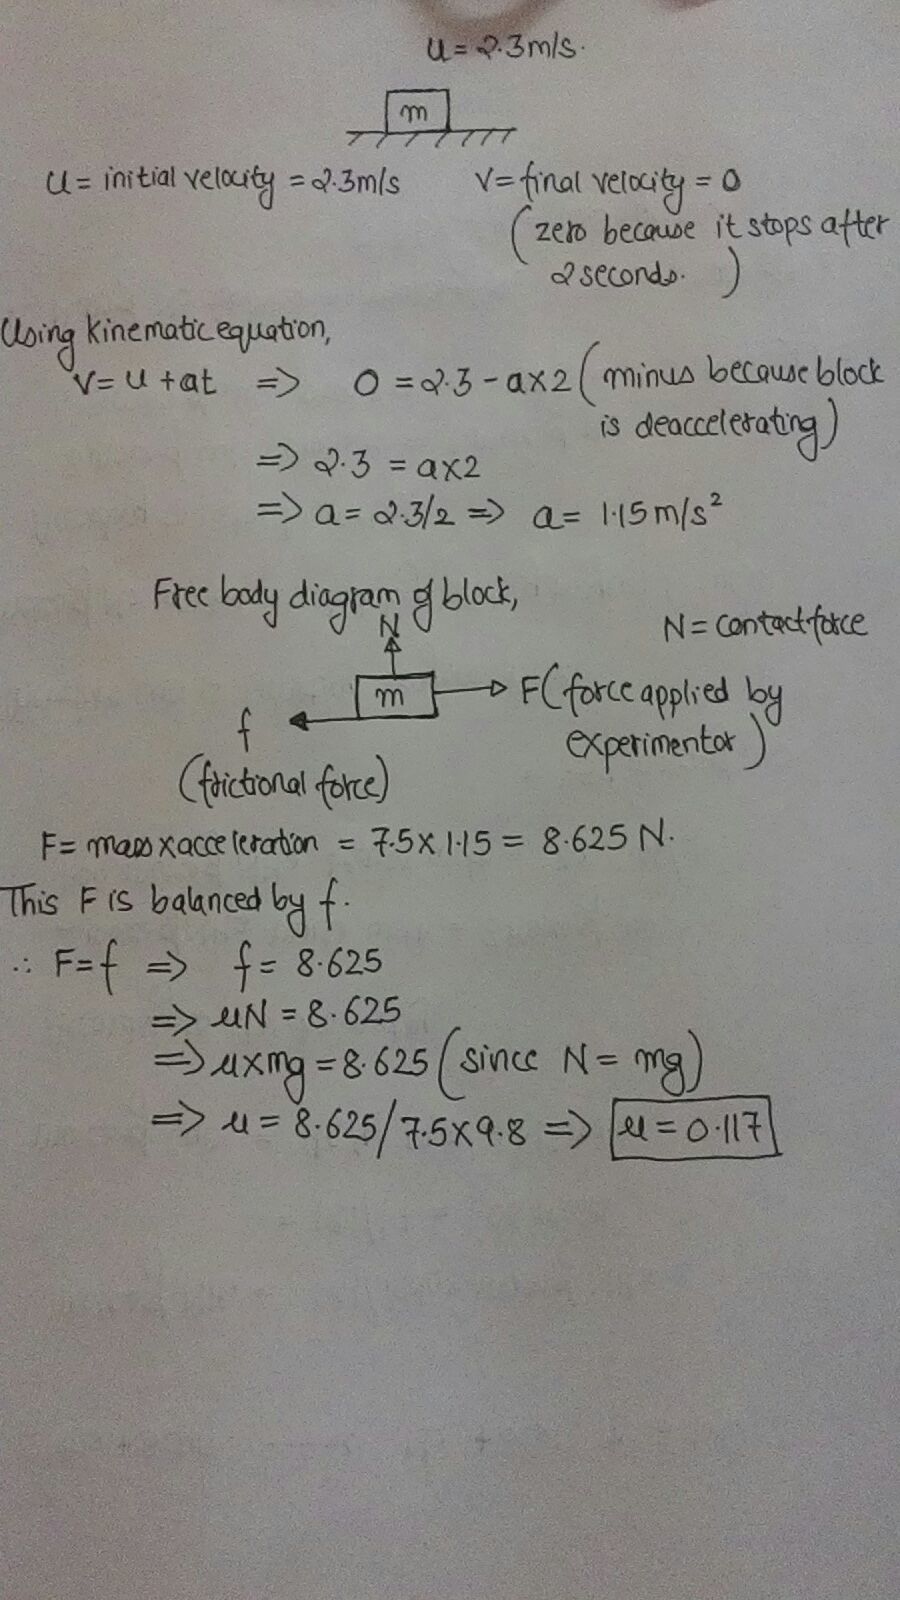 u = 2.3m/s.
m
u = initial velocity = 2.3m/s v = final velocity = 0
(zero because it stops after
2 seconds. )
Using kinematic equation,
v = u + at => 0 = 2.3 - a×2 (minus because block
is deaccelerating)
=> 2.3 = a×2
=> a = 2.3/2 => a = 1.15 m/s²
Free body diagram of block,
N
N = contact force
m F(force applied by
experimentor)
f
(frictional force)
F = mass × acceleration = 7.5 × 1.15 = 8.625 N.
This F is balanced by f.
∴ F = f => f = 8.625
=> μN = 8.625
=> μ×mg = 8.625 (since N = mg)
=> μ = 8.625/7.5×9.8 => μ = 0.117